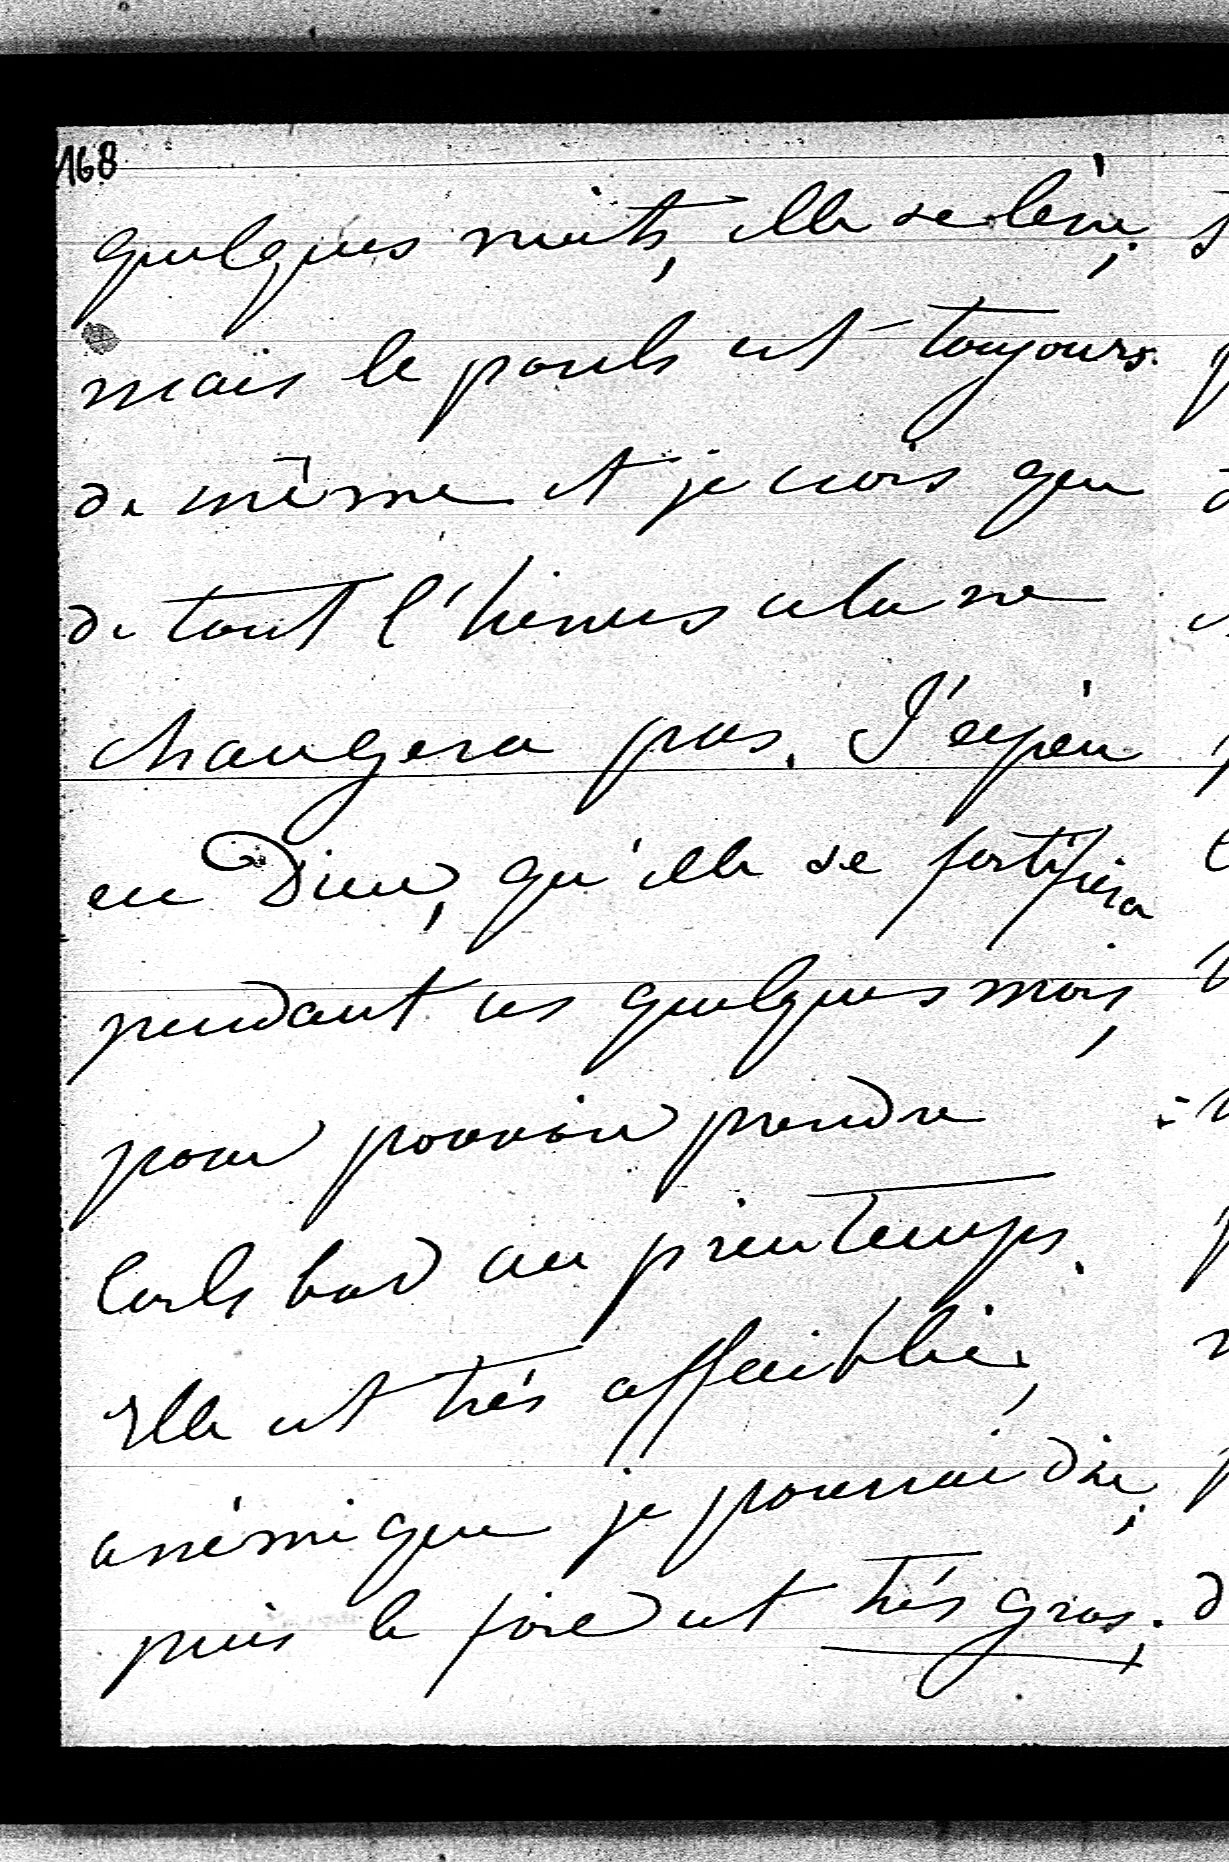 168
quelques nuits, elle se lève;
mais le pouls est toujours
de même et je crois que
de tout l'hiver cela ne
changera pas. J'espère
en Dieu, qu'elle se fortifiera
pendant ces quelques mois,
pour pouvoir prendre
Carlsbad au printemps.
Elle est très affaiblie,
anémique je pourrai dire;
puis le foie est très gros;